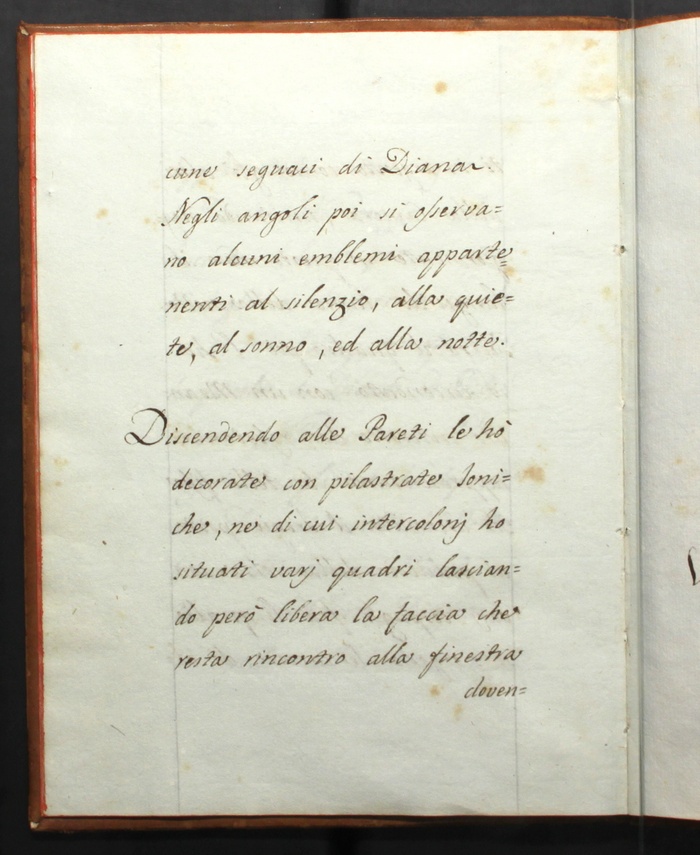 cune seguaci di Diana.
Negli angoli poi si osserva=
no alcuni emblemi apparte=
nenti al silenzio, alla quie=
te, al sonno, ed alla notte.
Discendendo alle Pareti le hò
decorate con pilastrate Ioni=
che, ne di cui intercolonj ho
situati varj quadri lascian=
do però libera la faccia che
resta rincontro alla finestra
doven=